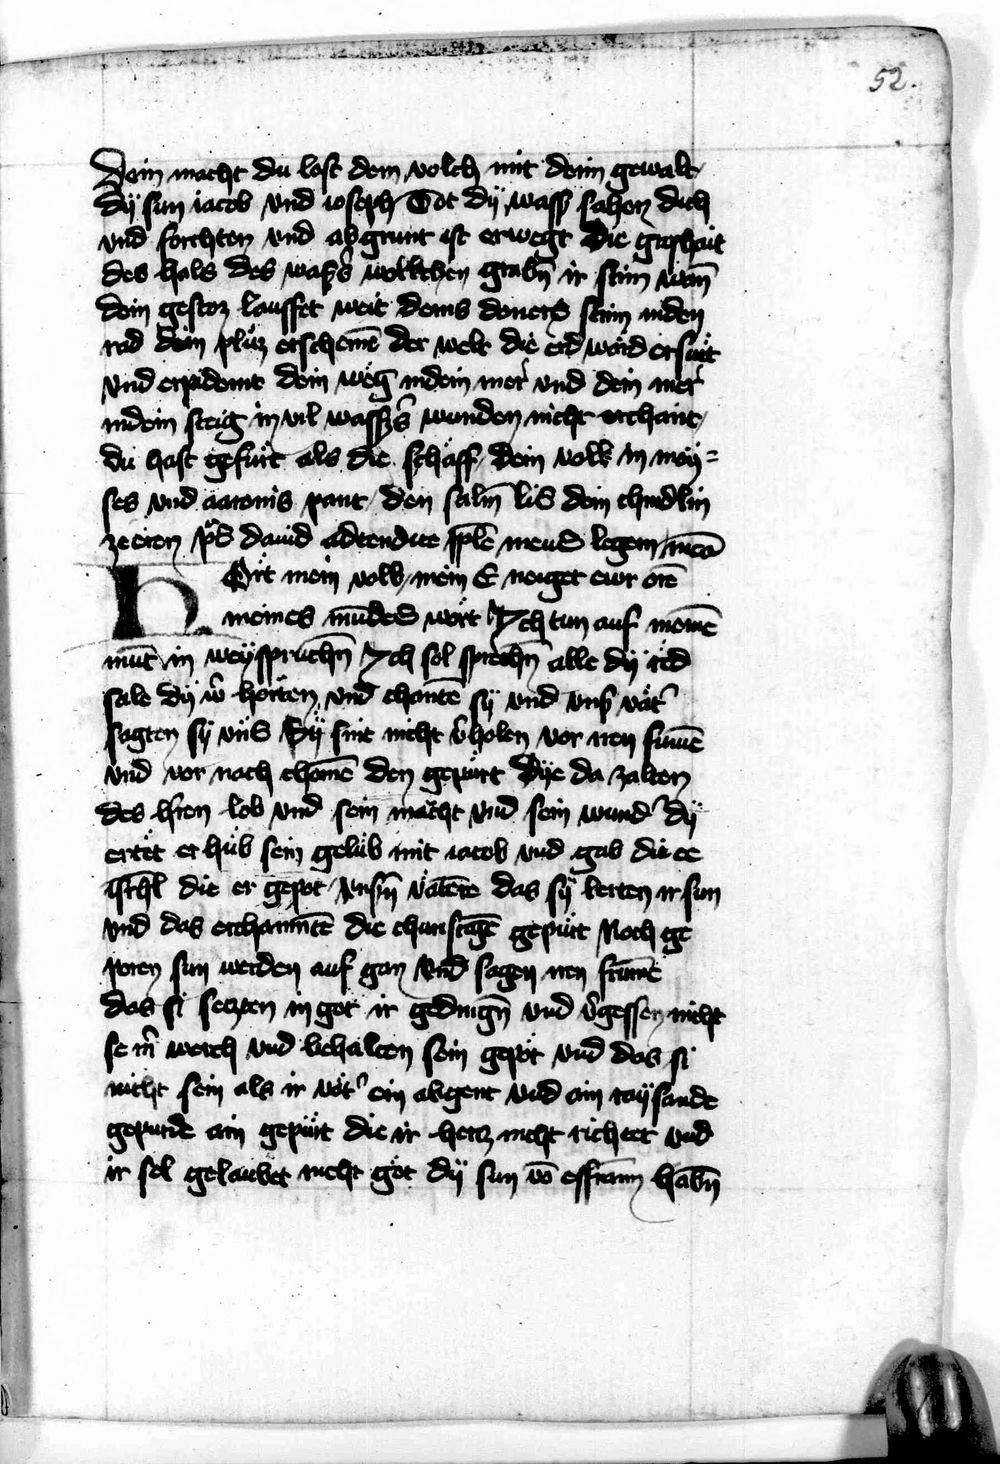 52.
Dein macht du lost dein volch mit deim gewalt
dÿ sun iacob vnd ioseph Got dÿ wass sahen dich
vnd forchten vnd abgrunt ist erwegt Die groshait
des hals des wassers wolkchen gabn ir stim wan
dein geschoz lauffet weit deins doners stim inden
rad dein pliz erscheine der welt die erd ward ersuet
vnd erpidemt dein weg indein mer vnd dein mer
indein steig in vil wassers wurden nicht erchant
du hast gefurt als die schaff dein volk in moÿ=
ses vnd aaronis hant den salm lis dein chindlin
zeeren ps dauid adtendite pple meus legem meā
Hört mein volk mein E neiget ewr orē
meines mundes wort Ich tun auf meinē
munt in weÿspruchn Ich sol sprechn alle dÿ red
sale dÿ w horten vnd chantē sÿ vnd vns vät
sagten sÿ vns Sÿ sint nicht vholen vor iren sunē
vnd vor nach chomē den gepurt Dÿe da zalten
des hren lob vnd sein macht vnd sein wund dÿ
ertet er hub sein gelub mit iacob vnd gab die ee
isrhl die er gepot vnsn väterē das sÿ lerten ir sun
vnd das erchanntē die chunftigē gepurt Noch ge
poren sun werden auf gan Vnd sagen iren sunē
das si setzten in got ir gedingn vnd vgessen nicht
seīn werch vnd behalten sein gepot vnd das si
nicht sein als ir vät ein abgent vnd ain raÿsande
gepurde ain gepurt die ir hertz nicht richtet vnd
ir sel gelaubet nicht got dÿ sun vō effraim habn